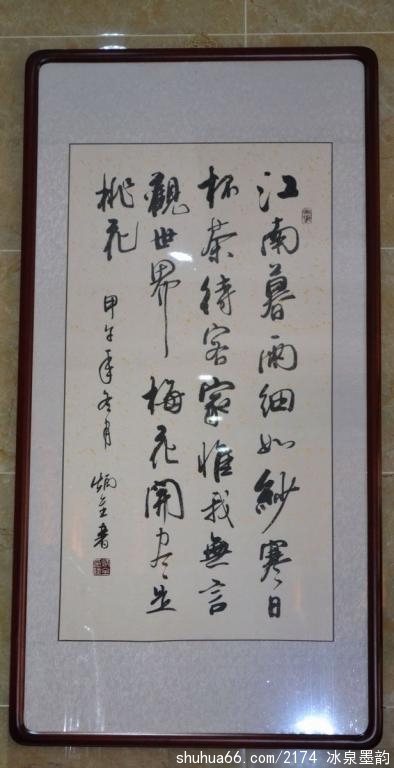 江南暮雨細如紗寒日
杯茶待客家惟我無言
觀世界梅花開尽是
桃花
甲午年冬月
書
shuhua66.com/2174 冰泉墨韵